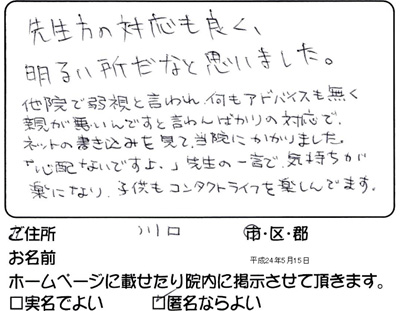 先生方の対応も良く、
明るい所だなと思いました。
他院で弱視と言われ、何もアドバイスも無く
親が悪いんですと言わんばかりの対応で、
ネットの書き込みを見て、当院にかかりました。
"心配ないですよ。」先生の一言で、気持ちが
楽になり、子供もコンタクトライフを楽しんでます。
ご住所 川口 市・区・郡
お名前 平成24年5月15日
ホームページに載せたり院内に掲示させて頂きます。
□実名でよい □匿名ならよい